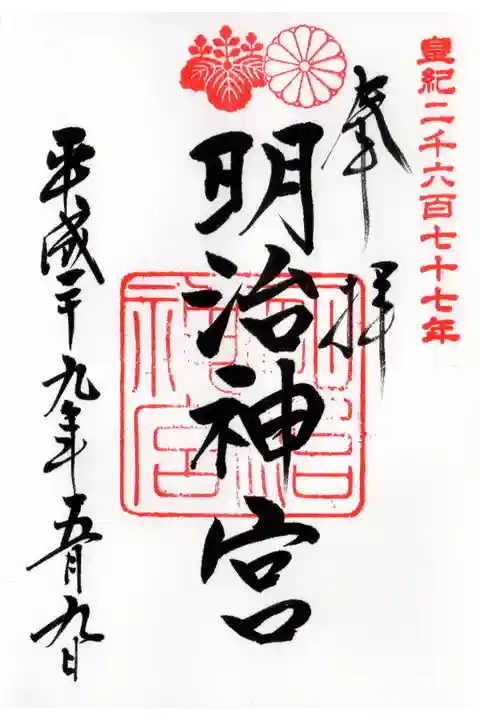 皇紀二千六百七十七年
奉拝
明治神宮
明治神宮
平成二十九年五月九日